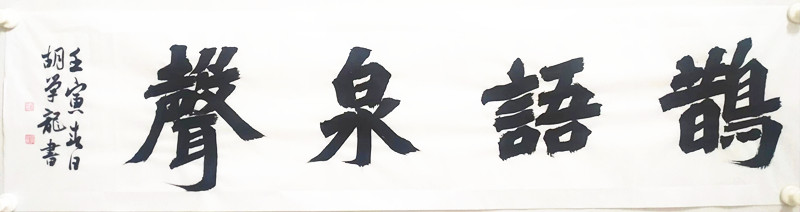 鵲語泉聲
壬寅春日
胡學龍書